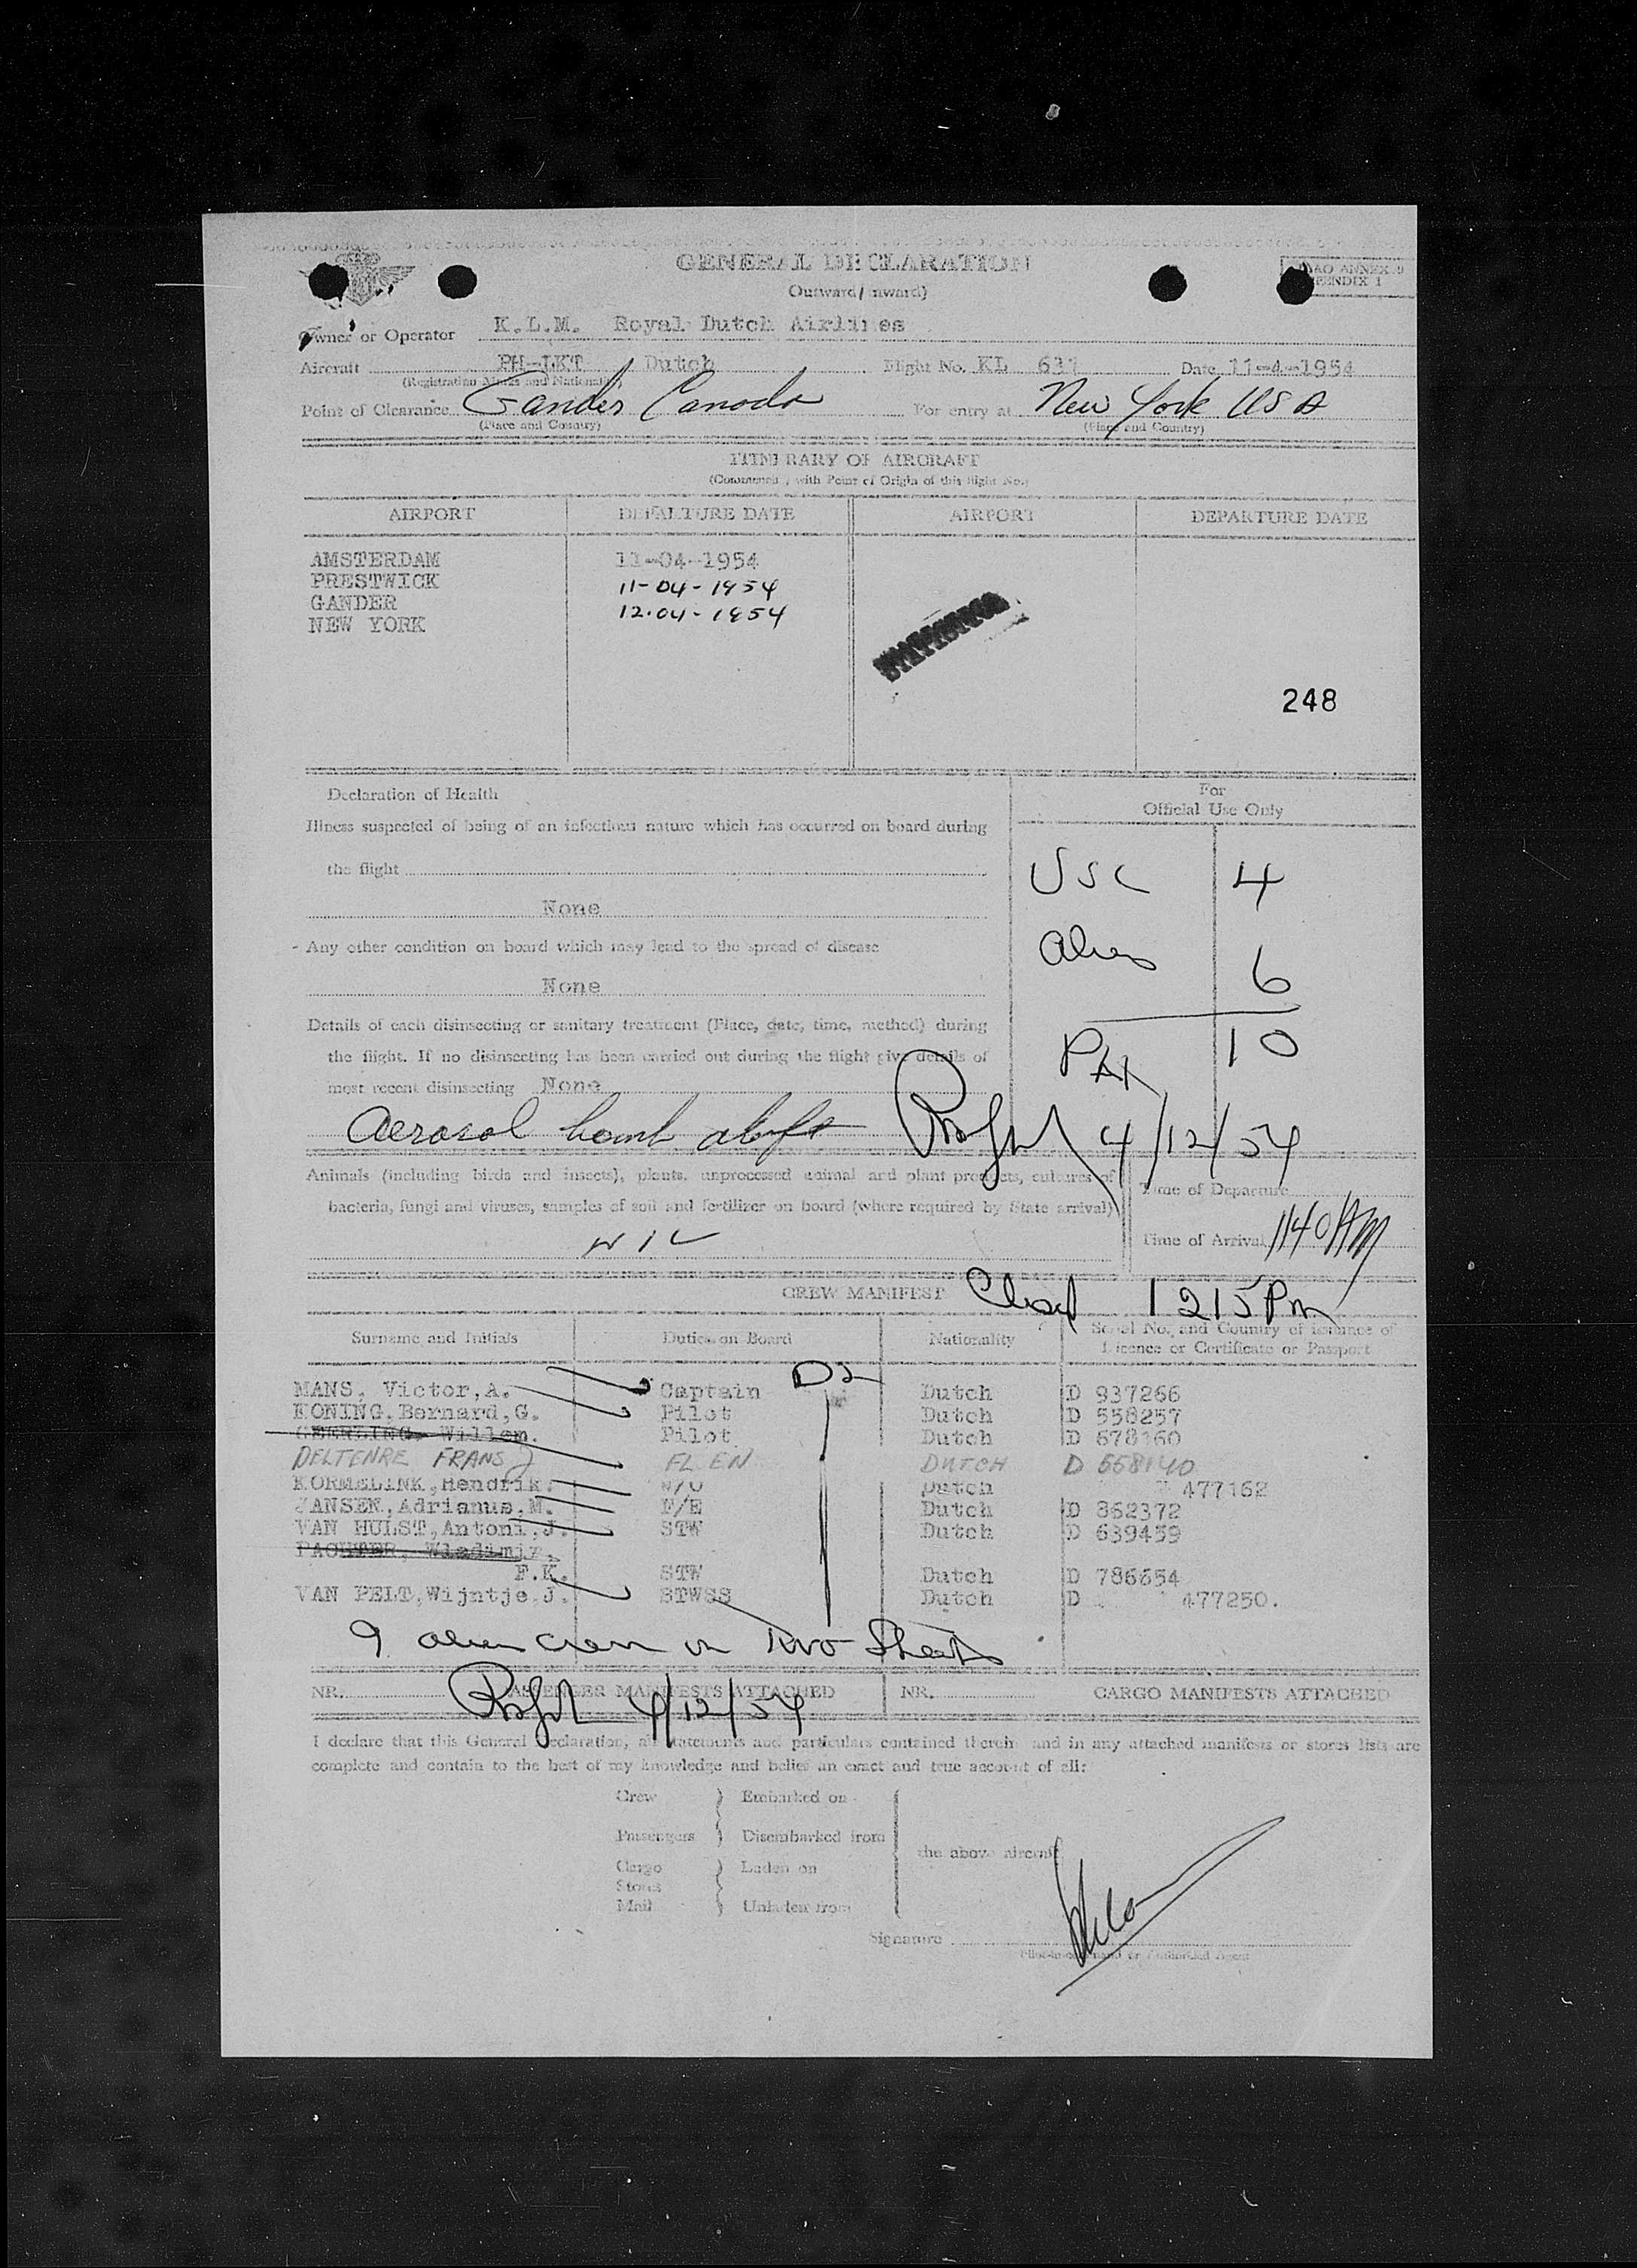 GENERAL DECLARATION
(Outward/Inward)
ICAO ANNEX 9
APPENDIX 1
Owner or Operator K.L.M. Royal Dutch Airlines
Aircraft PH-LKT / Dutch Flight No. KL 631 Date 11-4-1954
(Registration Marks and Nationality)
Point of Clearance Gander Canada For entry at New York USA
(Place and Country) (Place and Country)
ITINERARY OF AIRCRAFT
(Commencing with Point of Origin of this flight No.)
AIRPORT DEPARTURE DATE AIRPORT DEPARTURE DATE
AMSTERDAM 11-04-1954
PRESTWICK 11-04-1954
GANDER 12.04-1954
NEW YORK
248
Declaration of Health
For
Official Use Only
Illness suspected of being of an infectious nature which has occurred on board during
the flight
None
USC 4
Any other condition on board which may lead to the spread of disease
None
Alien 6
Details of each disinsecting or sanitary treatment (Place, date, time, method) during
the flight. If no disinsecting has been carried out during the flight give details of
most recent disinsecting None
PAX 10
Aerosol bomb aloft 4/12/54
Animals (including birds and insects), plants, unprocessed animal and plant products, cultures of
bacteria, fungi and viruses, samples of soil and fertilizer on board (where required by State arrival)
NIL
Time of Departure
Time of Arrival 1140 AM
CREW MANIFEST Closed 1215 Pm
Surname and Initials Duties on Board Nationality Serial No. and Country of issuance of
Licence or Certificate or Passport
D2
MANS, Victor,A. Captain Dutch D 937266
KONING,Bernard,G. Pilot Dutch D 558257
GEERLING, Willem. Pilot Dutch D 678160
DELTENRE FRANS J FL EN DUTCH D 558140
KORMELINK,Hendrik. W/O Dutch 477162
JANSEN,Adrianus,M. F/E Dutch D 862372
VAN HULST,Antoni,J. STW Dutch D 639459
PACHTER, Wladimir.
F.K. STW Dutch D 786654
VAN PELT,Wijntje,J. STWSS Dutch D 477250.
9 alien crew on Two Sheets
NR. PASSENGER MANIFESTS ATTACHED NR. CARGO MANIFESTS ATTACHED
4/12/54
I declare that this General Declaration, all statements and particulars contained therein and in any attached manifests or stores lists are
complete and contain to the best of my knowledge and belief an exact and true account of all:
Crew } Embarked on
Passengers } Disembarked from
the above aircraft
Cargo } Laden on
Stores
Mail } Unladen from
Signature
Pilot-in-command or Authorized Agent